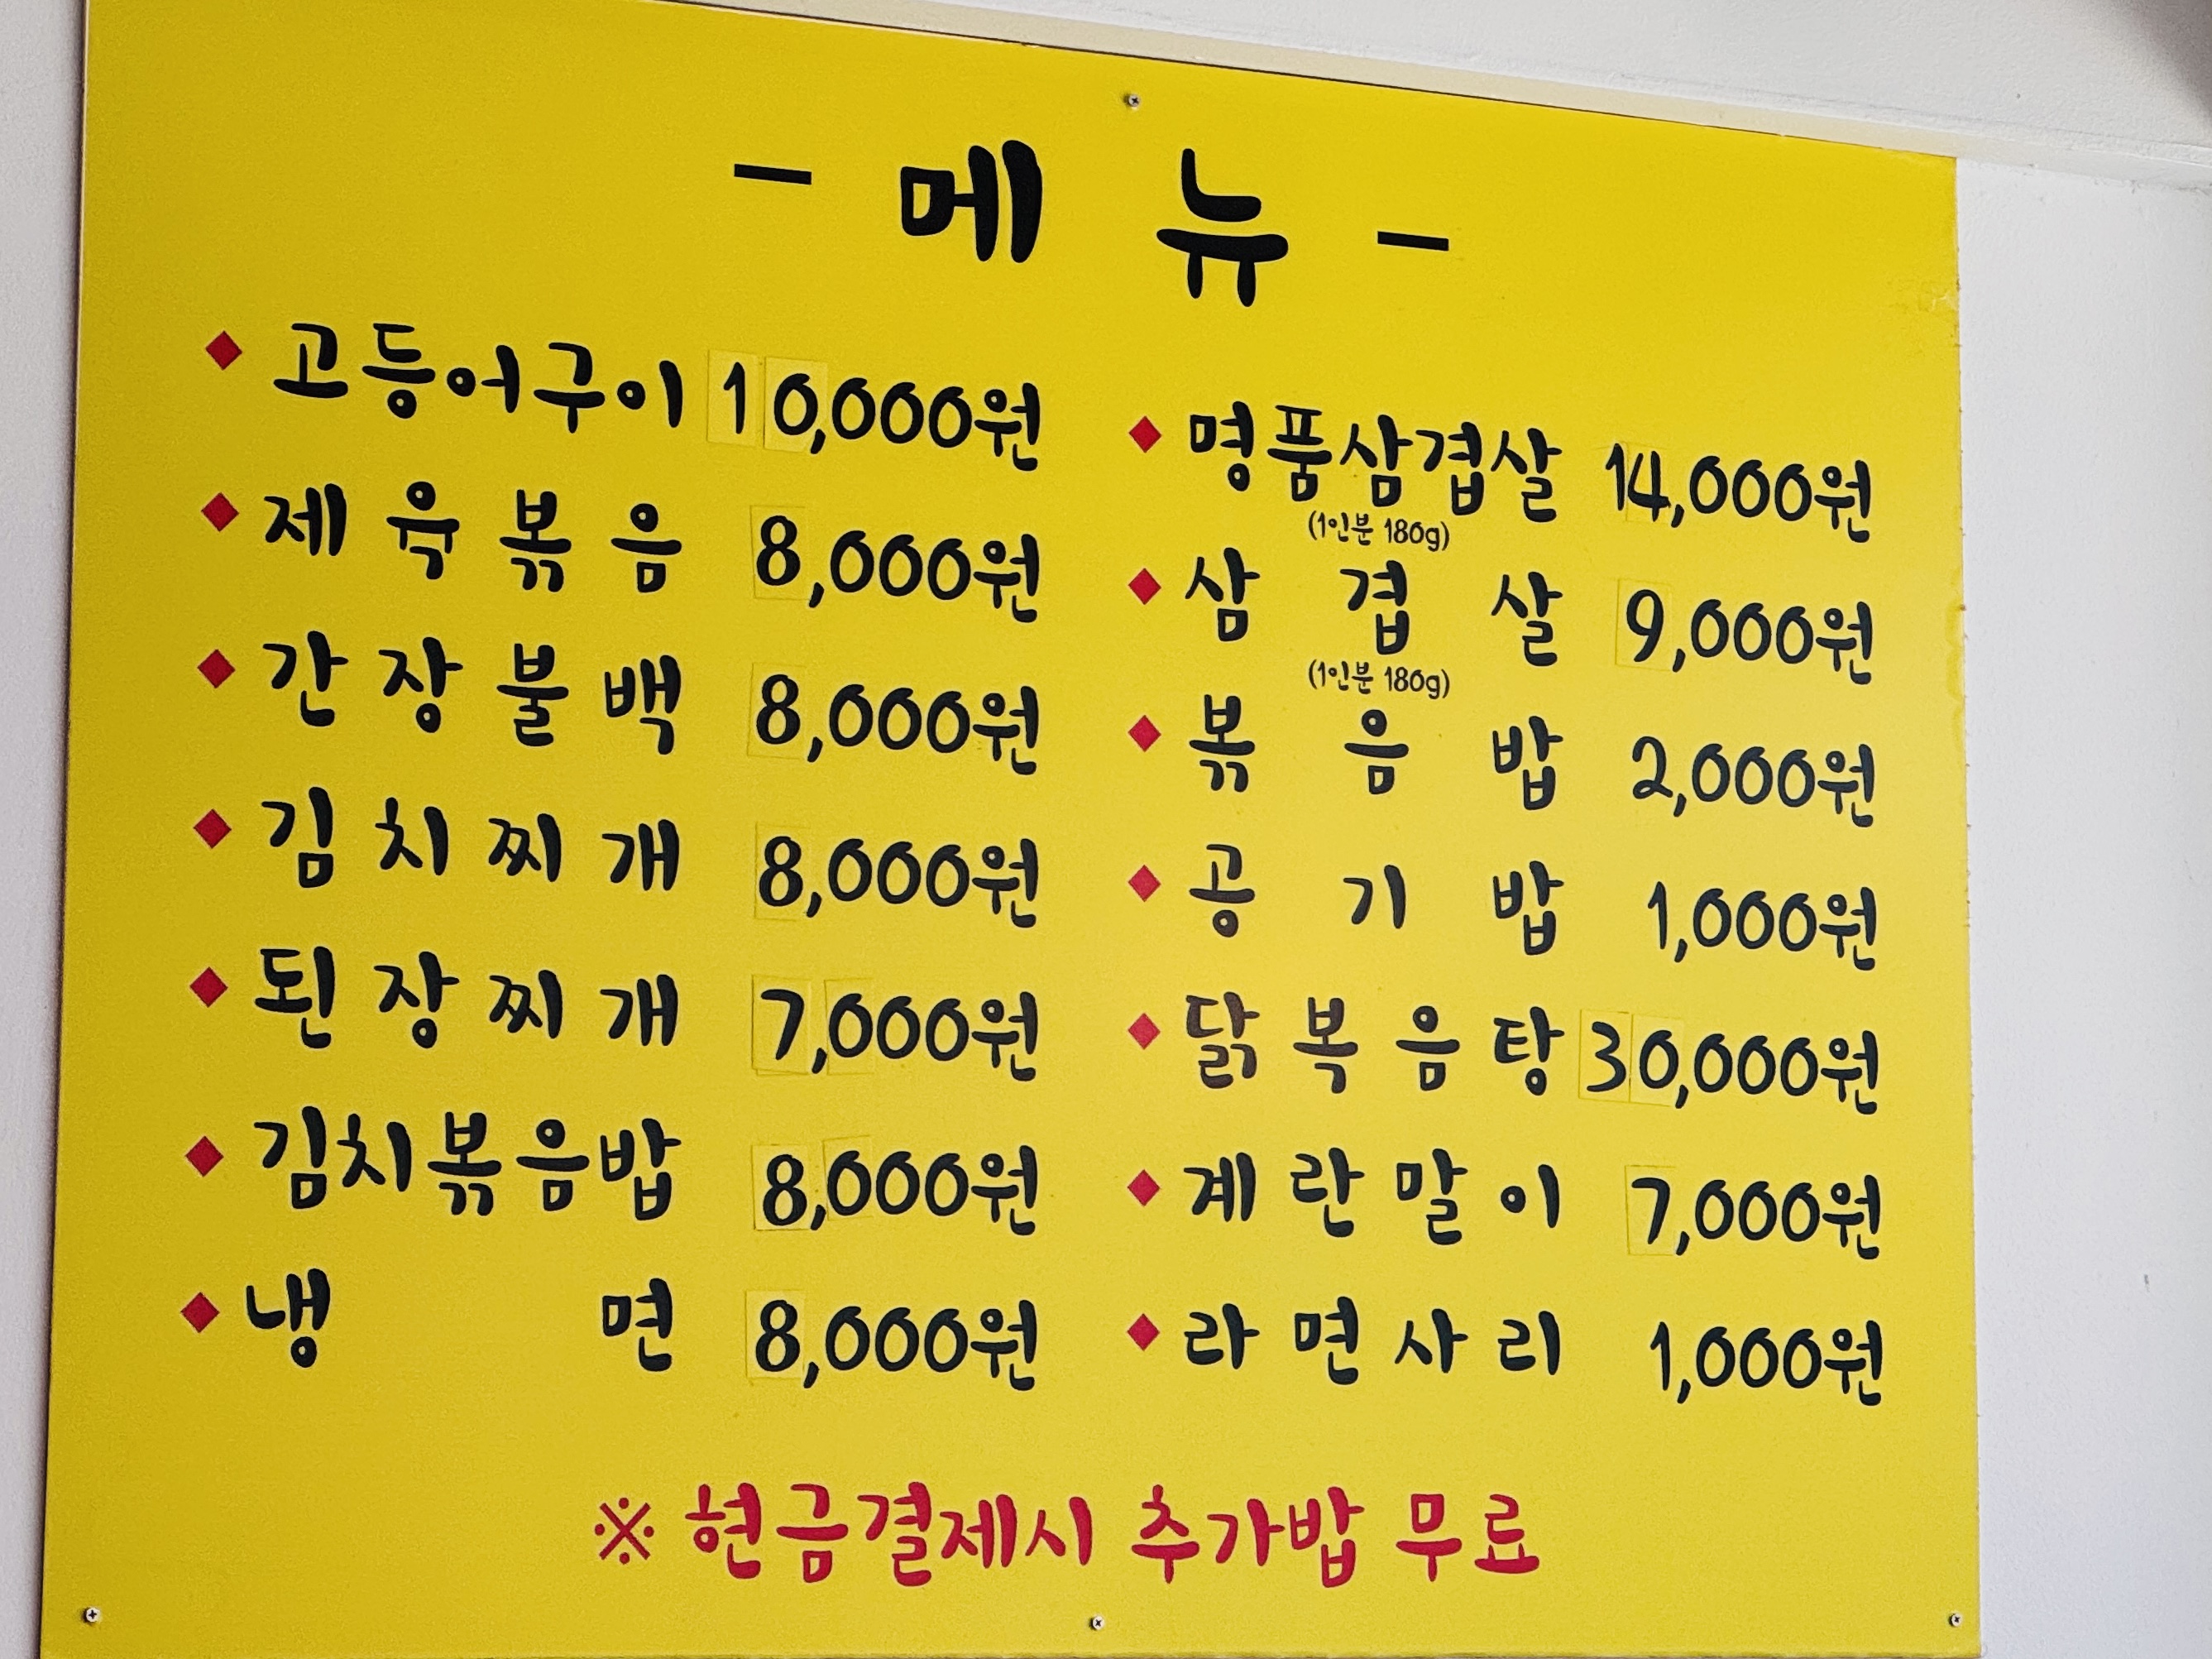 - 메 뉴 -
◆ 고등어구이 10,000원
◆ 제육볶음 8,000원
◆ 간장불백 8,000원
◆ 김치찌개 8,000원
◆ 된장찌개 7,000원
◆ 김치볶음밥 8,000원
◆ 냉면 8,000원
◆ 명품삼겹살 14,000원
(1인분 180g)
◆ 삼겹살 9,000원
(1인분 180g)
◆ 볶음밥 2,000원
◆ 공기밥 1,000원
◆ 닭복음탕 30,000원
◆ 계란말이 7,000원
◆ 라면사리 1,000원
※ 현금결제시 추가밥 무료